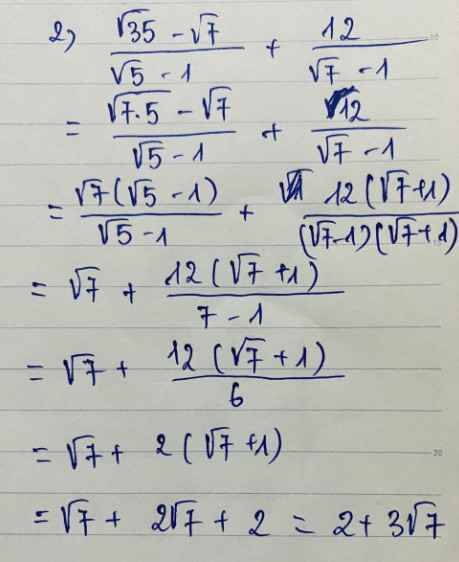 2) (√35 - √7)/(√5 - 1) + 12/(√7 - 1)
= (√7·5 - √7)/(√5 - 1) + 12/(√7 - 1)
= √7(√5 - 1)/(√5 - 1) + 12(√7+1)/((√7-1)(√7+1))
= √7 + 12(√7 +1)/(7 - 1)
= √7 + 12(√7 + 1)/6
= √7 + 2(√7 +1)
= √7 + 2√7 + 2 = 2 + 3√7